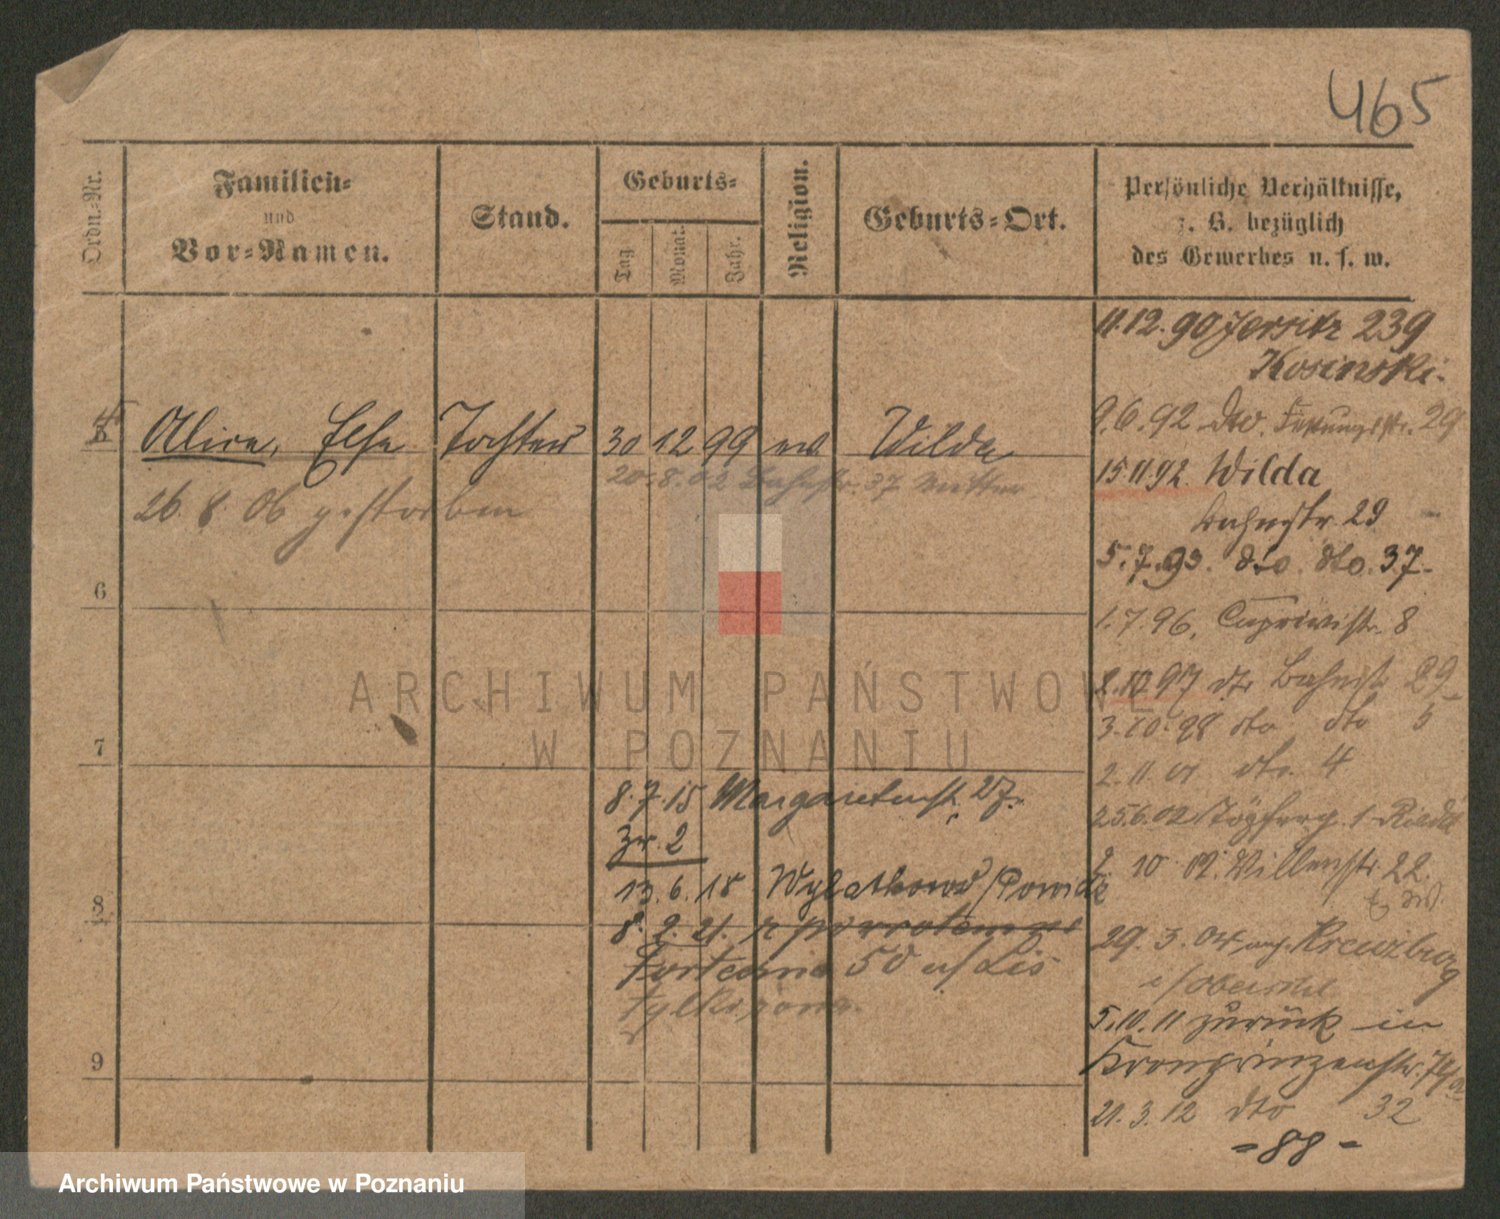 465
Ordn.-Nr.
Familien-
und
Vor-Namen.
Stand.
Geburts-
Tag
Monat.
Jahr.
Religion.
Geburts-Ort.
Persönliche Verhältnisse,
z. B. bezüglich
des Gewerbes u. s. w.
11.12.90 Jersitz 239
Kosinski.
9.6.92 dto. 29
Alice, Else Tochter 30 12 99 ev Wilda
20.8.02 Bahnstr. 37 Mutter
15.11.92 Wilda
26. 8. 06 gestorben
Bahnstr 29
5.7.93. dto. dto. 37
6
1.7.96, Caprivistr. 8
2.10 97 dto Bahnstr 29
3.10.98 dto dto 5
7
2.11.01 dto. 4
8.7.15 Margaretenstr. 27.
25.6.02 1
Zr. 2
2. 10 02. Villenstr. 22.
13.6.18 Powidz
8
8. 2. 21. z powrotem
29. 3. 04 Kreuzburg
Forteczna 50 Lis
5.10.11 zurück in
Kronprinzenstr. 74
9
21.3.12 dto 32
- 88 -
ARCHIWUM PAŃSTWOWE
W POZNANIU
Archiwum Państwowe w Poznaniu